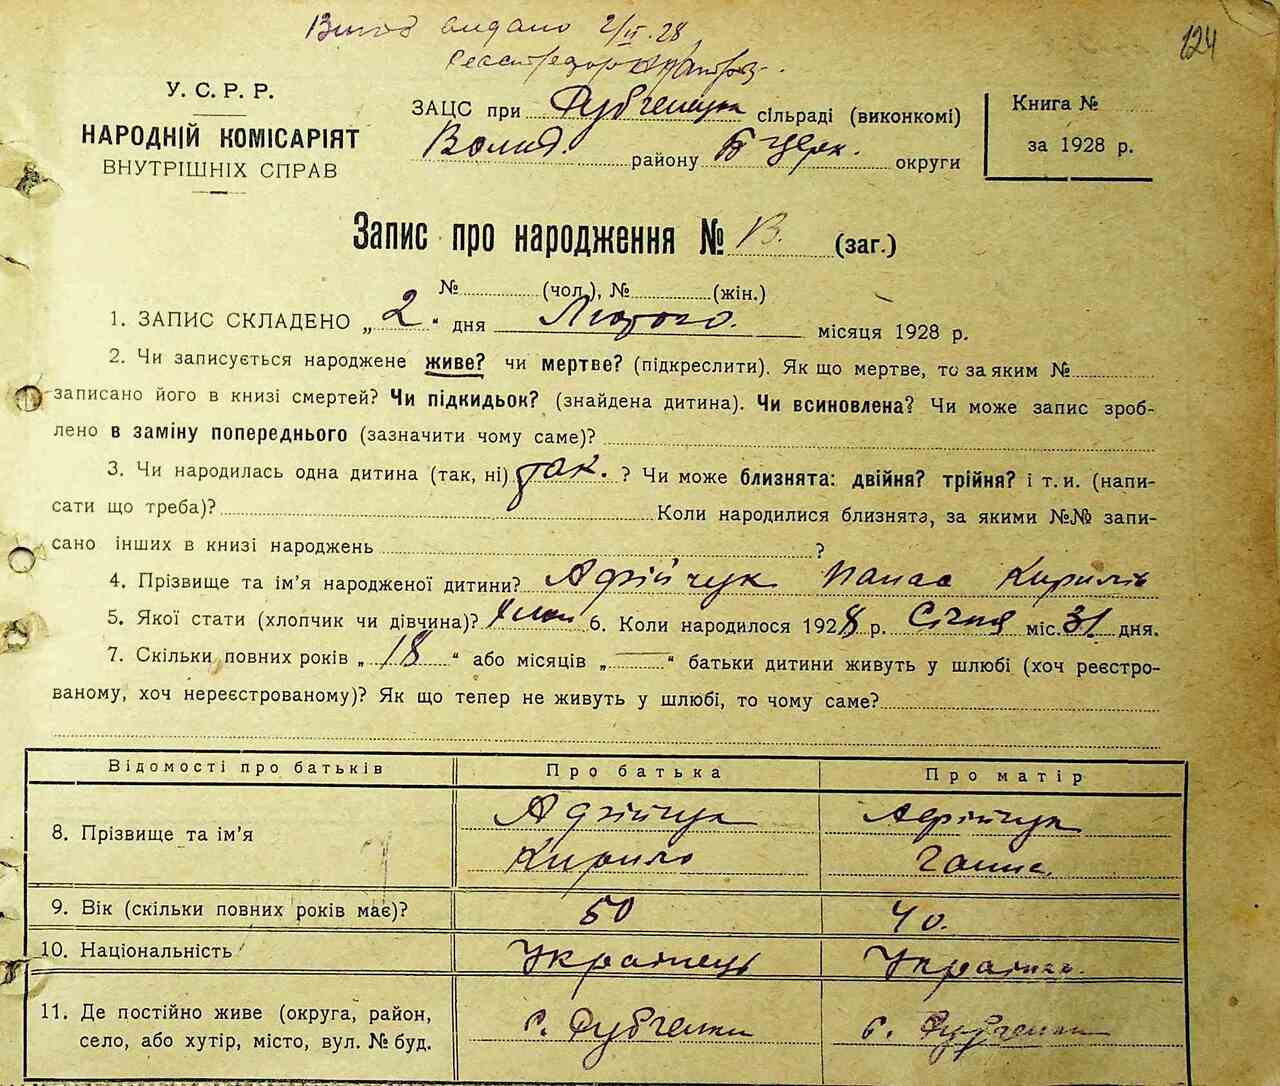 видано 2/II.28
124
У. С. Р. Р.
НАРОДНІЙ КОМІСАРІЯТ
ВНУТРІШНІХ СПРАВ
ЗАЦС при сільраді (виконкомі)
Волод. району Б Церк. округи
Книга №
за 1928 р.
Запис про народження № (заг.)
№ (чол.), № (жін.)
1. ЗАПИС СКЛАДЕНО „ 2 “ дня Лютого. місяця 1928 р.
2. Чи записується народжене живе? чи мертве? (підкреслити). Як що мертве, то за яким №
записано його в книзі смертей? Чи підкидьок? (знайдена дитина). Чи всиновлена? Чи може запис зроб-
лено в заміну попереднього (зазначити чому саме)?
3. Чи народилась одна дитина (так, ні) так. ? Чи може близнята: двійня? трійня? і т. и. (напи-
сати що треба)? Коли народилися близнята, за якими №№ запи-
сано інших в книзі народжень ?
4. Прізвище та ім’я народженої дитини? Адрійчук Панас Кирилів
5. Якої стати (хлопчик чи дівчина)? 6. Коли народилося 1928 р. Січня міс. 31 дня.
7. Скільки повних років „ 18 “ або місяців „ — “ батьки дитини живуть у шлюбі (хоч реєстро-
ваному, хоч нереєстрованому)? Як що тепер не живуть у шлюбі, то чому саме?
Відомості про батьків Про батька Про матір
8. Прізвище та ім’я Адрійчук Адрійчук
Кирило Ганна
9. Вік (скільки повних років має)? 50 40.
10. Національність Українець Українка
11. Де постійно живе (округа, район,
село, або хутір, місто, вул. № буд. с. Дубченки с. Дубченки